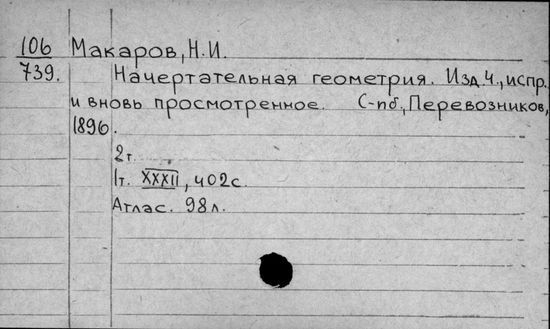 106 Макаров, Н.И.
739. Начертательная геометрия. Изд. 4., испр.
и вновь просмотренное. С-пб, Перевозников,
1896.
2т.
1т. XXXII, 402с.
Атлас. 98л.